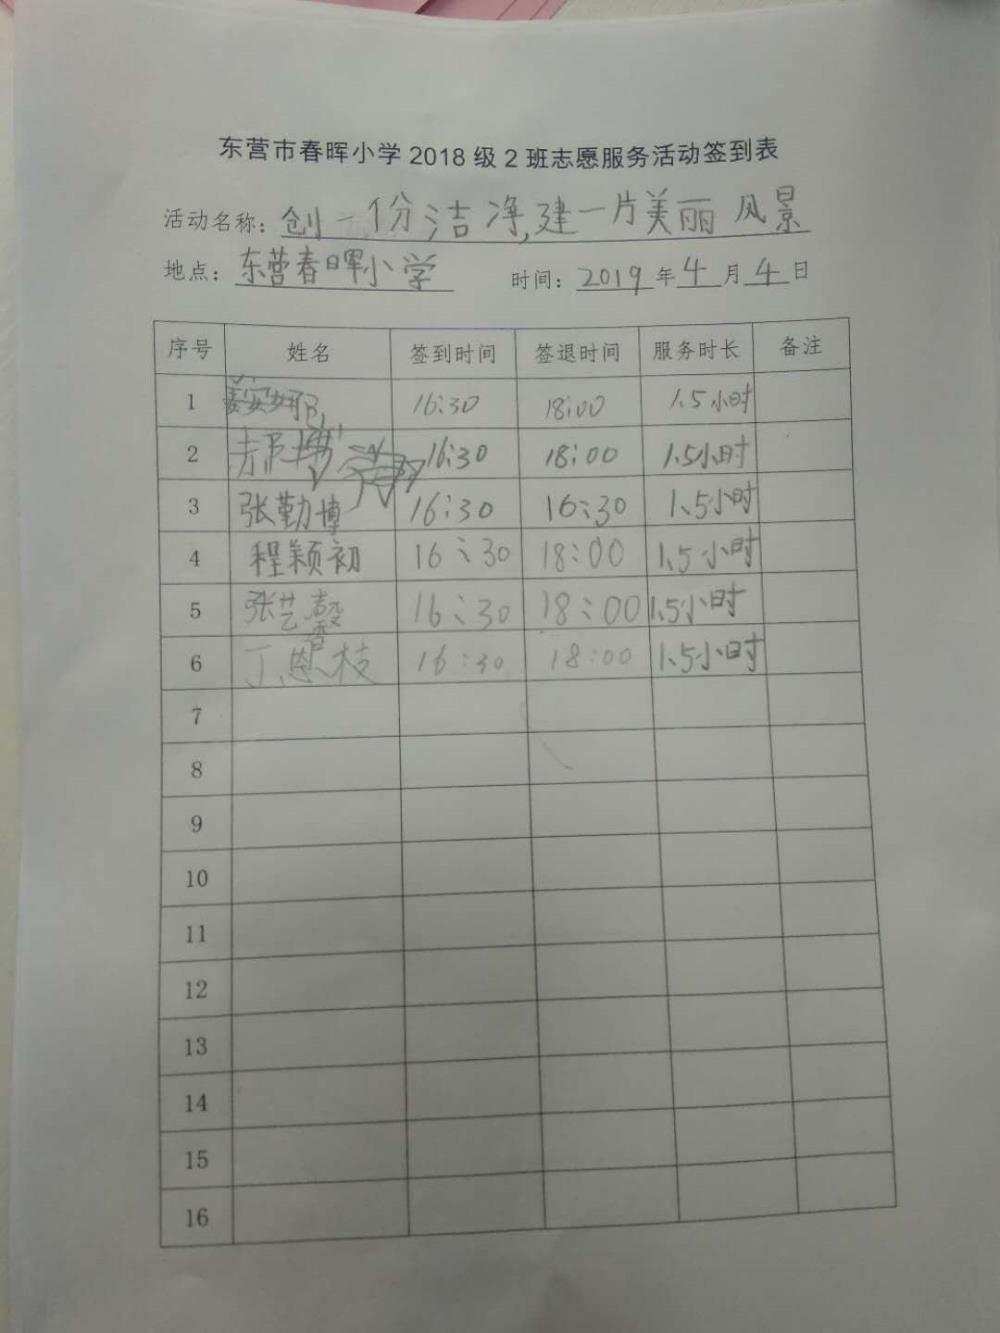 东营市春晖小学2018级2班志愿服务活动签到表
活动名称：创一份洁净,建一片美丽风景
地点：东营春晖小学 时间：2019年4月4日
序号 姓名 签到时间 签退时间 服务时长 备注
1 16:30 18:00 1.5小时
2 16:30 18:00 1.5小时
3 张勤博 16:30 16:30 1.5小时
4 程颖初 16:30 18:00 1.5小时
5 张艺馨 16:30 18:00 1.5小时
6 丁恩枝 16:30 18:00 1.5小时
7
8
9
10
11
12
13
14
15
16